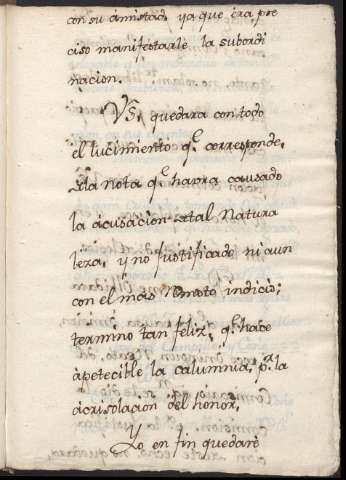 con su amistad, ya que era pre
ciso manifestarle la subordi
nacion.
VS. quedara con todo
el lucimiento q.e corresponde,
a la nota q.e havra causado
la acusacion de tal Natura
leza, y no justificado ni aun
con el mas Remoto indicio;
termino tan feliz, q.e hace
apetecible la calumnia, p.r la
acrisolacion del honor,
Yo en fin quedaré